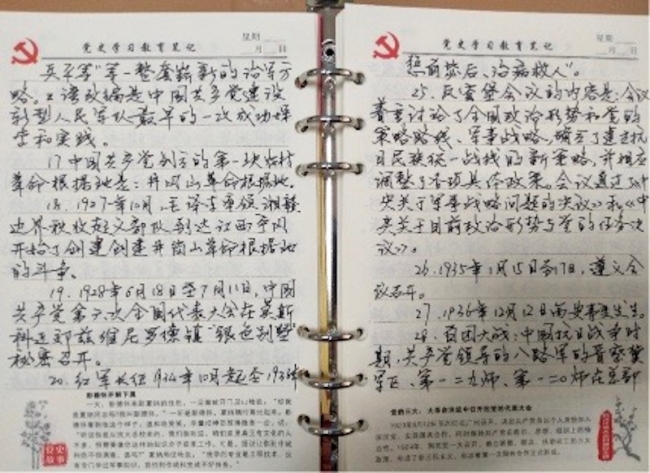 党史学习教育笔记
星期
月 日
兵平等"等一整套崭新的治军方
略。三湾改编是中国共产党建设
新型人民军队最早的一次成功探
索和实践。
17 中国共产党创立的第一块农村
革命根据地是：井冈山革命根据地。
18、1927年10月，毛泽东率领湘赣
边界秋收起义部队到达江西宁冈
开始了创建创建井岗山革命根据地
的斗争。
19、1928年6月18日至7月11日，中国
共产党第六次全国代表大会在莫斯
科近郊兹维尼罗德镇"银色别墅"
秘密召开。
20、红军长征1934年10月起至1936年
彭德怀开粥下属
党史故事
党史学习教育笔记
星期
月 日
惩前毖后、治病救人"。
25、瓦窑堡会议的内容是：会议
着重讨论了全国政治形势和党的
策略路线、军事战略，确定了建立抗
日民族统一战线的新策略，并相应
调整了各项具体政策。会议通过了《中
央关于军事战略问题的决议》和《中
央关于目前政治形势与党的任务决
议》。
26、1935年1月15日至17日，遵义会
议召开。
27、1936年12月12日西安事变发生。
28、百团大战：中国抗日战争时
期，共产党领导的八路军的晋察冀
军区、第一二九师、第一二0师在总部